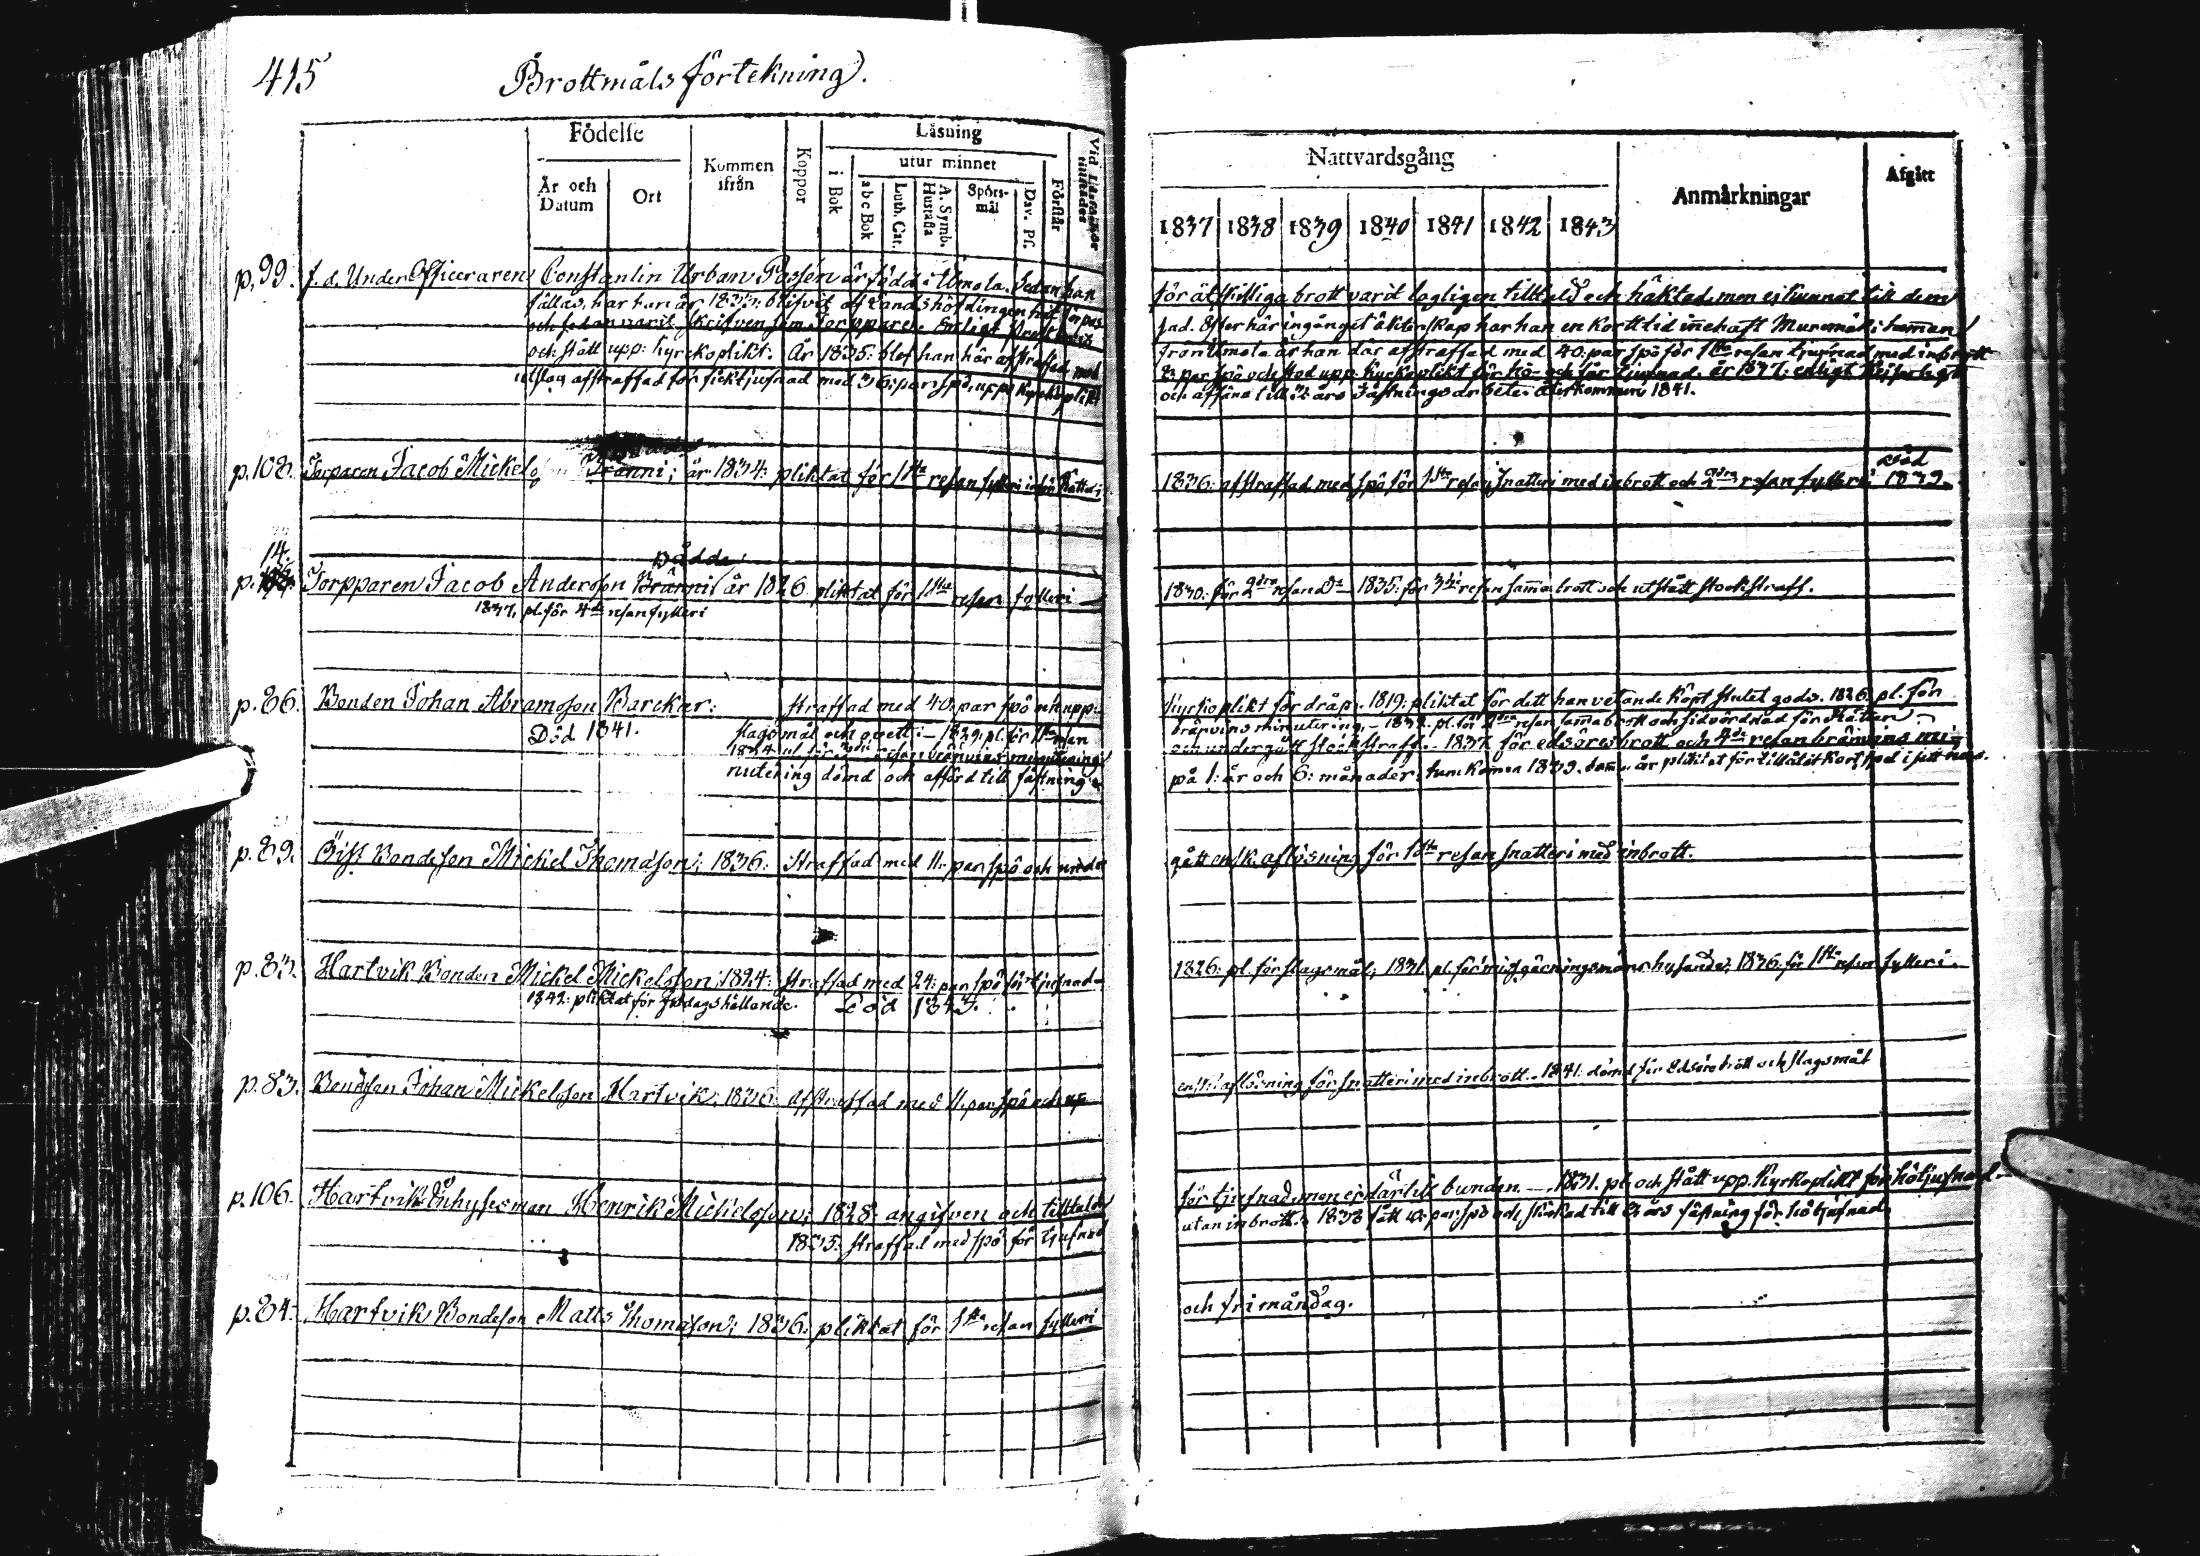 415
Brottmåls förtekning.
Födelse
År och Datum
Ort
Kommen ifrån
Koppor
Läsning
i Bok
utur minnet
abc Bok
Luth. Cat.
A. Symb. Hustafla
Spörsmål
Dav. Ps.
Förstår
Nattvardsgång
1837 1838 1839 1840 1841 1842 1843
Anmärkningar
Afgått
p. 99. f. d. UnderOfficeraren Constantin Urban Possén är född i Umola. Sedan han
för åtskilliga brott varit lagligen tilltald och häktad, men ej kunnat till dem
fällas, har han år 1833 blifvit af Landshöfdingen
fad. Efter här ingånget äktenskap har han en kort tid innehaft hemman
och sedan varit skrifven som Torppare. Enligt
från Umola är han där afstraffad med 40: par spö för 1sta resan tjufnad med inbrott
och stått upp: kyrkoplikt. År 1835: blef han här afstraffad med
par spö och stod upp: kyrkoplikt för tjufnad. år 1837: enligt
utslag afstraffad för ficktjufnad med 36: par spö, upp: kyrkoplikt
och afförd till 2: års Fästningsarbete: återkommen 1841.
p. 108. Torparen Jacob Mickelsson Bränni; år 1834: pliktat för 1sta resan fylleri inför Rätta;
1836: afstraffad med spö för 1sta resan Snatteri med inbrott och 2dra resan fylleri. Död 1839.
14.
p. Torpparen Jacob Andersson Bränni Dådda år 1826 pliktat för 1sta resan fylleri
1830: för 2dra resan Do 1835: för 3dje resan samma brott och utstått stockstraff.
1837. pl. för 4de resan fylleri
p. 86. Bonden Johan Abramsson Barckar: straffad med 40. par spö och upp:
Kyrkoplikt för dråp. 1819: pliktat för dett han vetande köpt stulet gods. 1826. pl. för
Död 1841. slagsmål och ovett: 1829: pl. för 1sta resan
bränvins minutering. 1832: pl. för 2dra resan samma brott och sidvördnad för Rätten
1834 pl. för 3dje resan bränvins minutering
och undergått stockstraff. 1837 för edsöresbrott och 4de resan bränvins mi-
nutering dömd och afförd till fästning
på 1: år och 6: månader; hemkommen 1839. samma år pliktat för tillåtit kortspel i sitt hus.
p. 89. Gift Bondeson Mickel Thomasson; 1836. Straffad med 11: par spö och under
gått ensk. aflösning för 1sta resan snatteri med inbrott.
p. 83. Hartvik Bonden Mickel Mickelsson; 1824: straffad med 24: par spö för tjufnad
1826: pl. för slagsmål; 1831 pl. för missgärningsmäns hysande; 1836: för 1sta resan fylleri.
1842: pliktat för spådagshållande. Död 1843.
p. 83. Bondson Johan Mickelsson Hartvik; 1836: afstraffad med 11. par spö och up
ensk: aflösning för snatteri med inbrott. 1841: dömd för Edsörebrott och slagsmål
p. 106. Hartviks Inhysesman Henrik Mickelsson; 1828: angifven och tilltalad
för tjufnad, men ej därtill bunden. 1831. pl. och stått upp. kyrkoplikt för hötjufnad
1835: straffad med spö för tjufnad
utan inbrott. 1838 fått 40: par spö och skickad till 2: års fästning för hötjufnad.
p. 84. Hartviks Bondeson Matts Thomasson; 1836: pliktat för 1sta resan fylleri
och frimåndag.